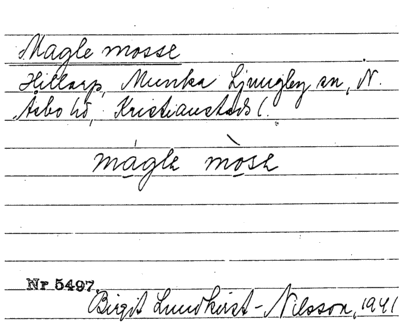 Magle mosse
Hillarp, Munka Ljungby sn, N.
Åsbo hd, Kristianstads l.
mágle mòse
Nr 5497.
Birgit Lundkvist-Nilsson, 1941